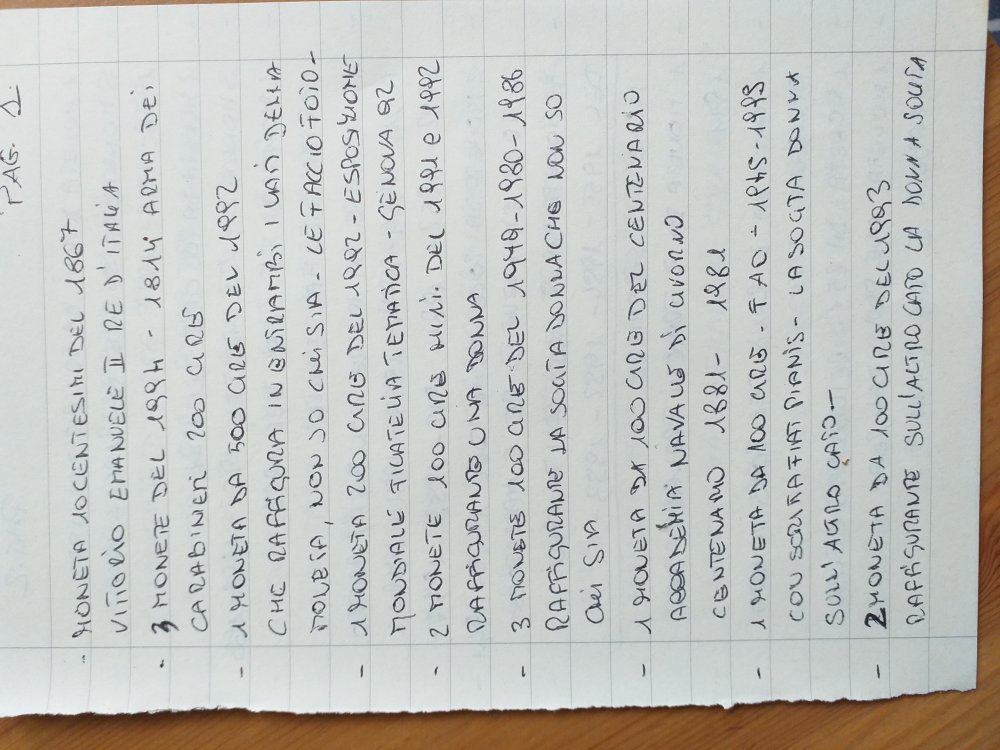 PAG. 1.
- MONETA 10 CENTESIMI DEL 1867
VITTORIO EMANUELE II RE D'ITALIA
- 3 MONETE DEL 1994 - 1814 ARMA DEI
CARABINIERI 200 LIRE
- 1 MONETA DA 500 LIRE DEL 1992
CHE RAFFIGURA IN ENTRAMBI I LATI DELLA
MONETA, NON SO CHI SIA - LE FACCIO FOTO -
- 1 MONETA 200 LIRE DEL 1992 - ESPOSIZIONE
MONDIALE FILATELIA TEMATICA - GENOVA 92
- 2 MONETE 100 LIRE MINI. DEL 1991 e 1992
RAFFIGURANTE UNA DONNA
- 3 MONETE 100 LIRE DEL 1979-1980-1986
RAFFIGURANTE LA SOLITA DONNA CHE NON SO
CHI SIA
- 1 MONETA DA 100 LIRE DEL CENTENARIO
ACCADEMIA NAVALE DI LIVORNO
CENTENARIO 1881 - 1981
- 1 MONETA DA 100 LIRE - FAO - 1945-1995
CON SCRITTA FIAT PANIS - LA SOLITA DONNA
SULL'ALTRO LATO -
- 2 MONETA DA 100 LIRE DEL 1993
RAFFIGURANTE SULL'ALTRO LATO LA DONNA SOLITA